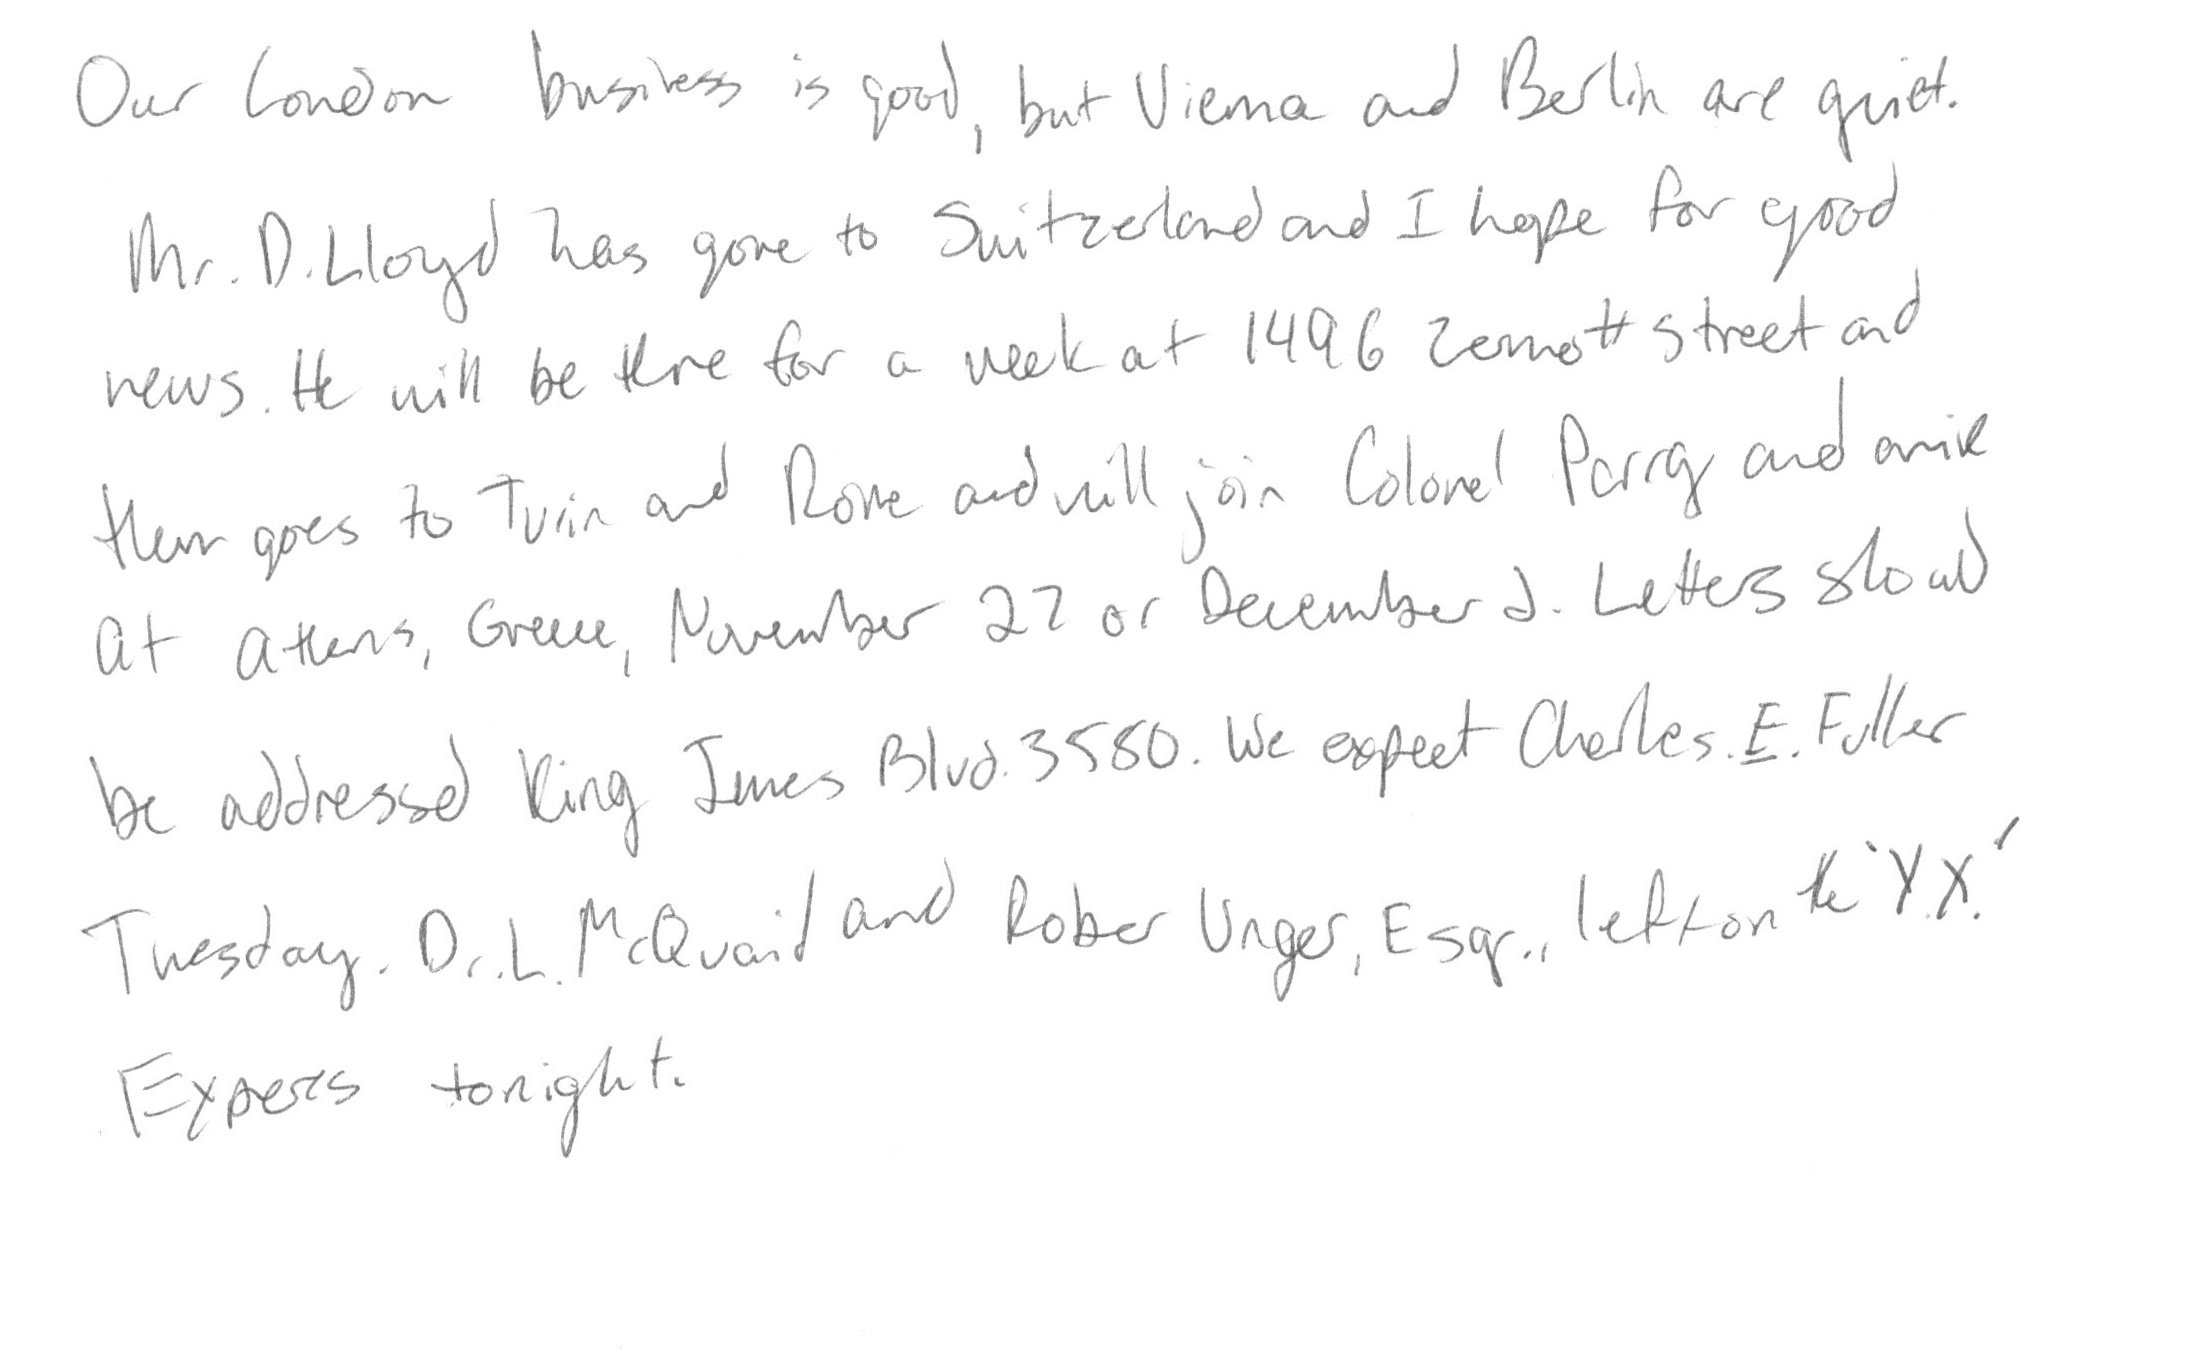 Our London business is good, but Vienna and Berlin are quiet.
Mr. D. Lloyd has gone to Switzerland and I hope for good
news. He will be there for a week at 1496 Zermott street and
then goes to Turin and Rome and will join Colonel Parry and arrive
at Athens, Greece, November 27 or December 2. Letters should
be addressed King James Blvd. 3580. We expect Charles. E. Fuller
Tuesday. Dr. L. McQuaid and Rober Unger, Esqr., left on the "Y.X."
Expers tonight.